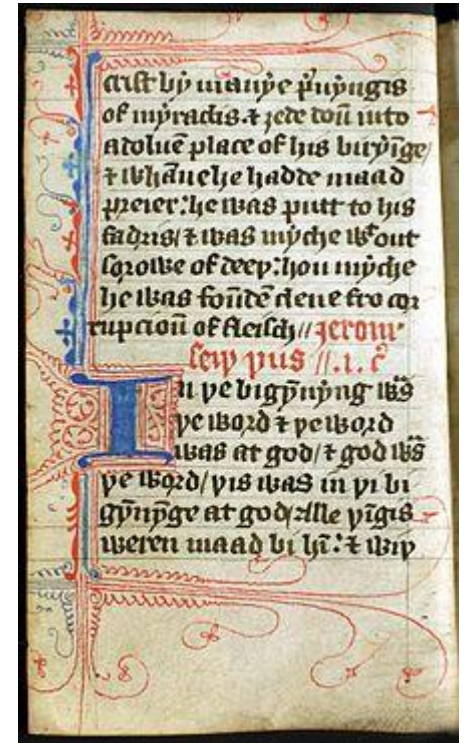 crist bi manye p̃uyngis
of myraclis ⁊ ȝede doũ into
a doluẽ place of his buryĩge/
⁊ whãne he hadde maad
preier: he was putt to his
fadris/ ⁊ was myche wᵗout
sorowe of deeþ: hou myche
he was foũdẽ clene fro cor
rupcioũ of fleisch // Jerom
seiþ þus // .i. cͦ
In þe bigyñyng was
þe word ⁊ þe word
was at god/ ⁊ god was
þe word/ þis was in þi bi
gyñynge at god/ alle þĩgis
weren maad bi hĩ: ⁊ wiþ